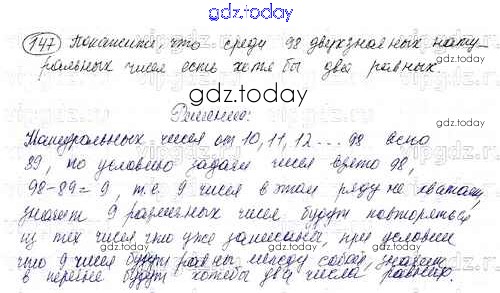 gdz.today
147 Покажите, что среди 98 двухзначных нату-
gdz.today
ральных чисел есть хотя бы два равных.
gdz.today
Решение:
Натуральных чисел от 10, 11, 12 ... 98 всего
89, по условию задачи чисел 98,
98-89=9, т.е. 9 чисел в этом ряду не
значит 9 чисел будут
из тех чисел что уже при условии
что 9 чисел будут равны между собой, значит
gdz.today
в будут хотя бы два числа равных.
gdz.today